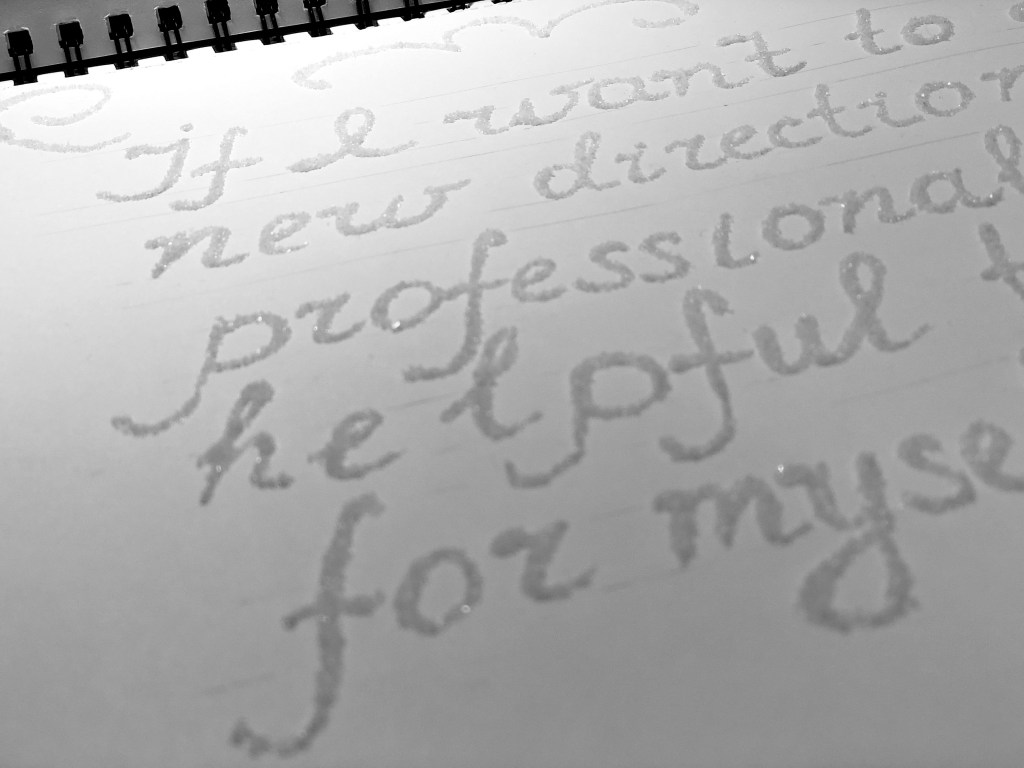 If I want to
new direction
professional
helpful t
for myse